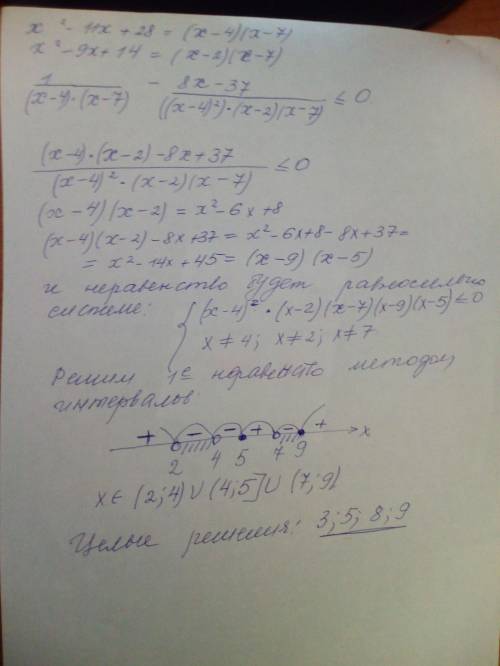 x² - 11x + 28 = (x-4)(x-7)
x² - 9x + 14 = (x-2)(x-7)
1/((x-4)·(x-7)) - (8x-37)/(((x-4)²)·(x-2)(x-7)) ≤ 0
((x-4)·(x-2)-8x+37)/((x-4)²·(x-2)(x-7)) ≤ 0
(x-4)(x-2) = x²-6x+8
(x-4)(x-2)-8x+37 = x²-6x+8-8x+37=
= x²-14x+45 = (x-9)(x-5)
и неравенство будет равносильно
системе: { (x-4)²·(x-2)(x-7)(x-9)(x-5) ≤ 0
x≠4; x≠2; x≠7
Решим 1е методом
интервалов:
+ - - + - + x
2 4 5 7 9
x∈ (2;4)∪(4;5]∪(7;9]
Целые решения: 3; 5; 8; 9